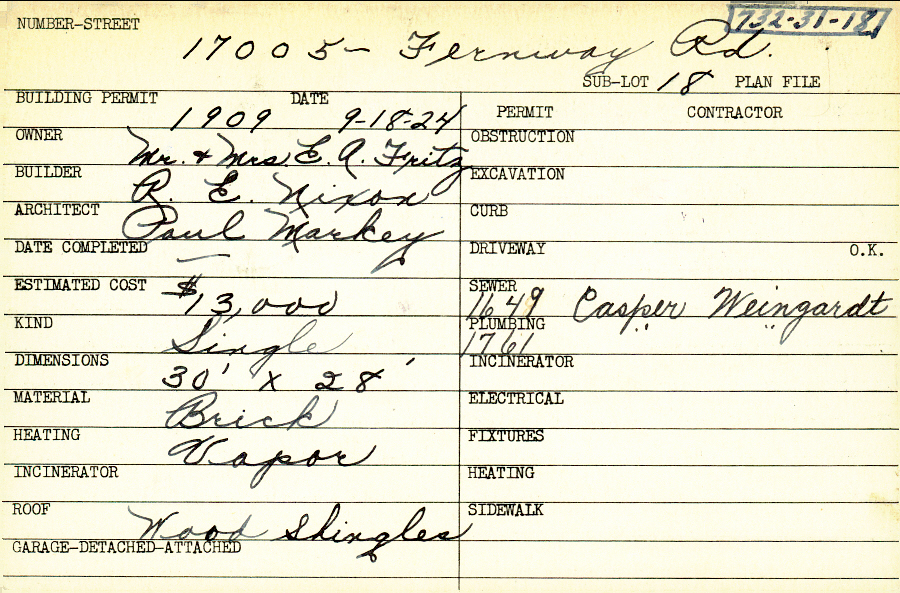 732-31-18
NUMBER-STREET 17005- Fernway Rd.
SUB-LOT 18 PLAN FILE
BUILDING PERMIT 1909 DATE 9-18-24
OWNER Mr. & Mrs E. A. Fritz
BUILDER R. E. Nixon
ARCHITECT Paul Markey
DATE COMPLETED —
ESTIMATED COST $13,000
KIND Single
DIMENSIONS 30' x 28'
MATERIAL Brick
HEATING Vapor
INCINERATOR
ROOF Wood Shingles
GARAGE-DETACHED-ATTACHED
PERMIT CONTRACTOR
OBSTRUCTION
EXCAVATION
CURB
DRIVEWAY O.K.
SEWER 1649 Casper Weingardt
PLUMBING 1761 " "
INCINERATOR
ELECTRICAL
FIXTURES
HEATING
SIDEWALK